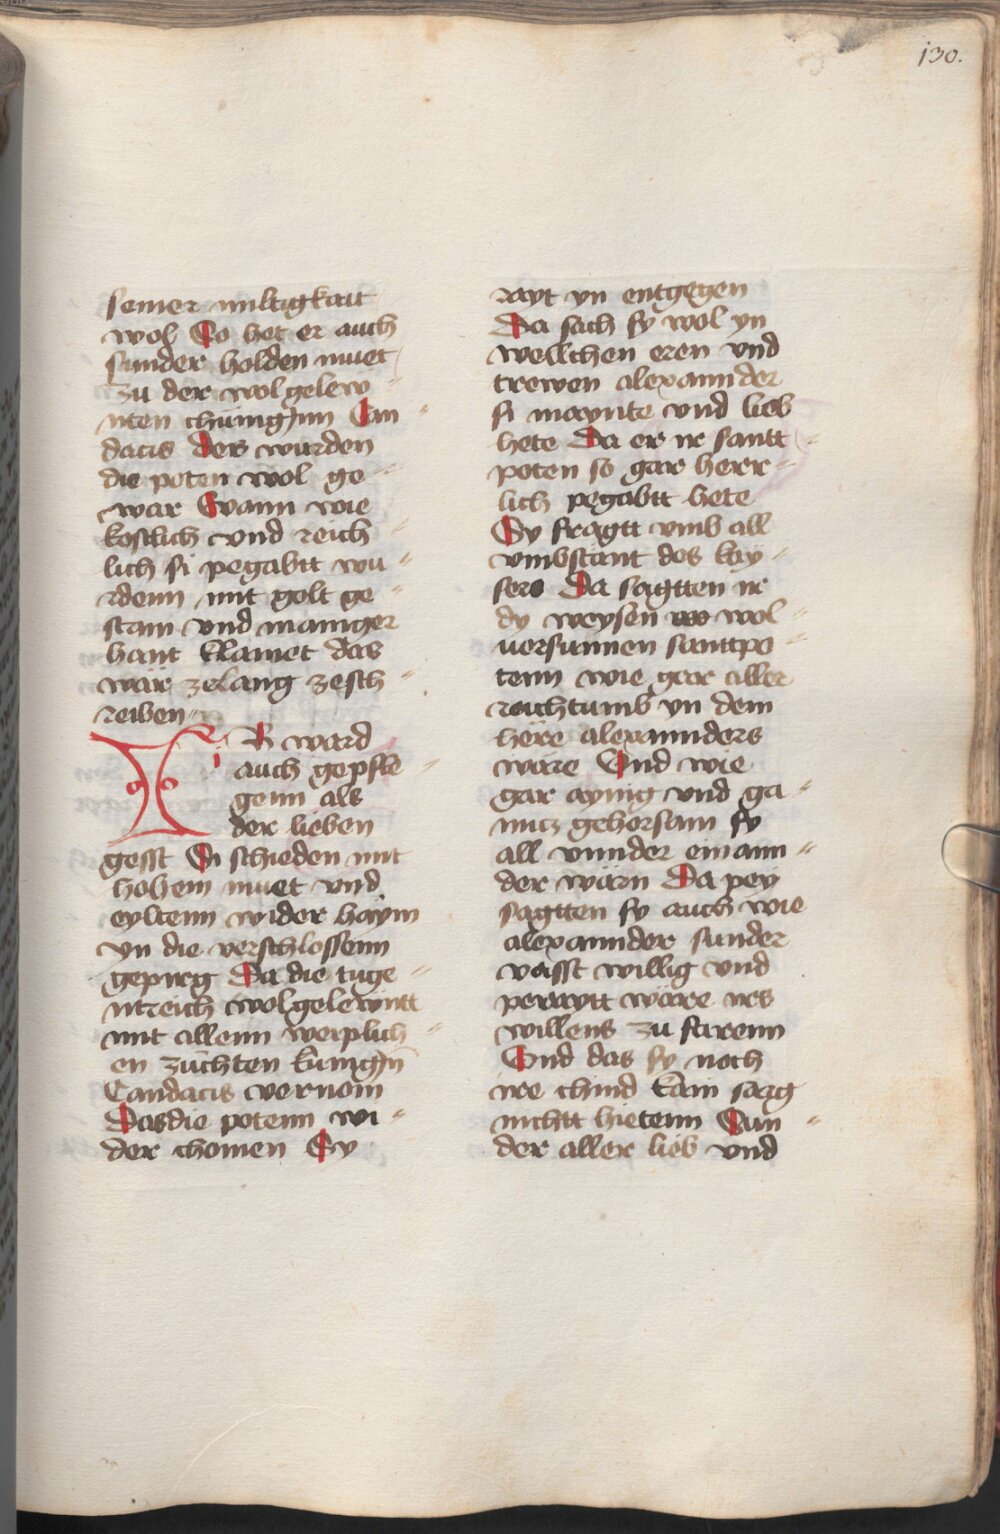 130.
seiner miltigkait
wol So het er auch
sunder holden muet
zu der wolgelew
nten chünigynn Can=
dacis Des wurden
die poten wol ge=
war Wann wie
kostlich vnd reich=
lich si pegabtt wu=
rdenn mit golt ge=
stain vnd maniger
hant klainet das
wär zelang zesch=
reiben
IR ward
auch gepfle=
genn als
der lieben
gesst Si schieden mit
hohem muet vnd
eyltenn wider haym
yn die verschlossenn
gepirg Da die tuge=
ntreich wolgelewntt
mit allenn weiplich=
en züchten künigyn
Candacis vernom
Das die potenn wi=
der chomen Sy
rayt yn entgegen
Da sach sy wol yn
wellchen eren vnd
trewen alexannder
si maynte vnd lieb
hete Da er ir santt=
poten so gar herr=
lich pegabtt hete
Sy fragtt vmb all
vmbstant des kay=
sers Da sagtten ir
dy weysen wol=
uersunnen santtpo=
tenn wie gar aller
reichtumb yn dem
here alexannders
ware Vnd wie
gar aynig vnd ga=
nntz gehorsam sy
all vnnder einann=
der wärn Da pey
sagtten sy auch wie
alexannder sunder
vasst willig vnd
peraytt wäre irs
willens zu farenn
Vnd das sy noch
ire chind kain sarg
nichtt hietenn Sun=
der aller lieb vnd